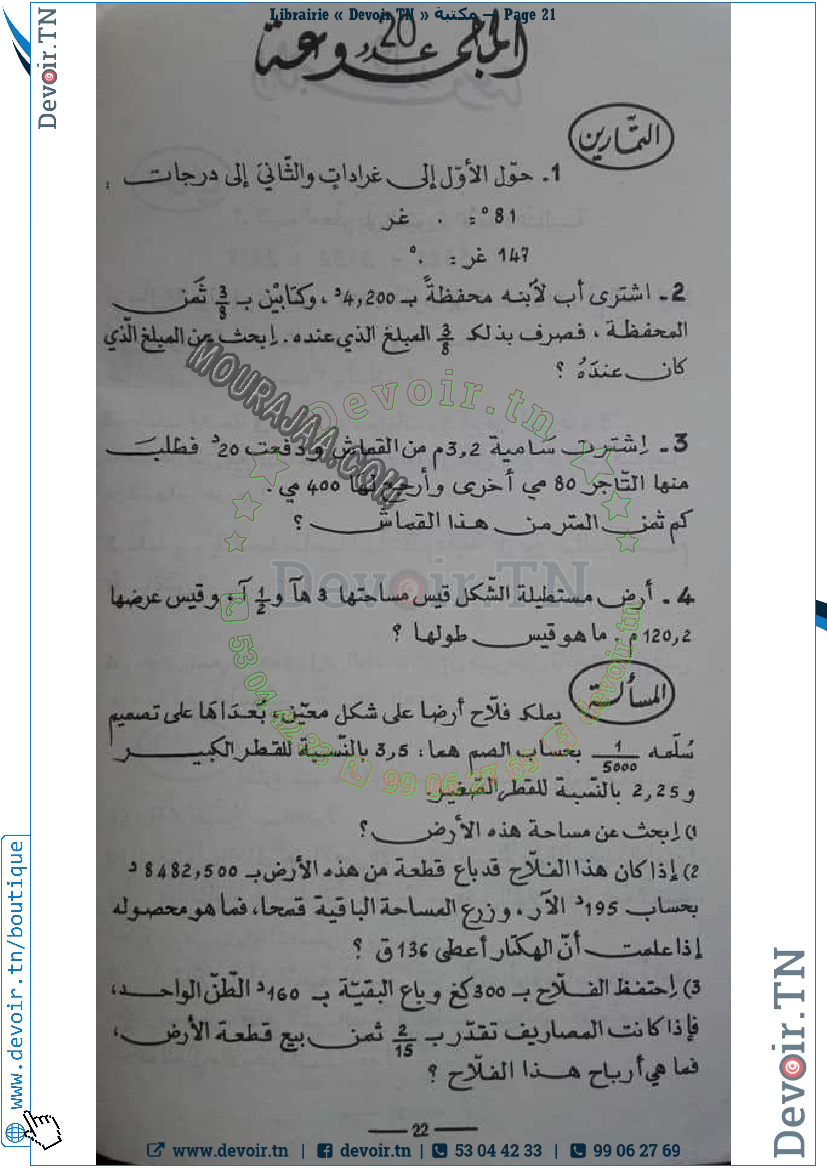 Librairie « Devoir.TN » مكتبة — Page 21
Devoir.TN
المجموعة عدد 20
التمارين
1. حوّل الأوّل إلى غرادات والثّاني إلى درجات :
81° = . غر
147 غر = .°
2. اشترى أب لابنه محفظةً بـ 4,200د، وكتابيْن بـ 3/8 ثمن
المحفظة، فصرف بذلك 3/8 المبلغ الذي عنده. إبحث عن المبلغ الّذي
كان عندهُ ؟
3. إشترت سامية 3,2م من القماش ودفعت 20د فطلب
منها التّاجر 80 مي أخرى وأرجع لها 400 مي.
كم ثمن المتر من هذا القماش ؟
4. أرض مستطيلة الشّكل قيس مساحتها 3 هآ و 1/2 آ، وقيس عرضها
120,2 م. ما هو قيس طولها ؟
المسألة
يملك فلّاح أرضا على شكل معيّن، بُعداها على تصميم
سُلّمه 1/5000 بحساب الصم هما: 3,5 بالنّسبة للقطر الكبير
و 2,25 بالنّسبة للقطر الصّغير.
1) إبحث عن مساحة هذه الأرض ؟
2) إذا كان هذا الفلّاح قد باع قطعة من هذه الأرض بـ 8482,500د
بحساب 195د الآر، وزرع المساحة الباقية قمحا، فما هو محصوله
إذا علمت أنّ الهكتار أعطى 136ق ؟
3) إحتفظ الفلّاح بـ 300كغ وباع البقيّة بـ 160د الطّنّ الواحد،
فإذا كانت المصاريف تقدّر بـ 2/15 ثمن بيع قطعة الأرض،
فما هي أرباح هذا الفلّاح ؟
22
MOURAJAA.COM
Devoir.tn
Devoir.TN
53 04 42 33
99 06 27 69
devoir.tn
www.devoir.tn/boutique
Devoir.TN
www.devoir.tn | devoir.tn | 53 04 42 33 | 99 06 27 69